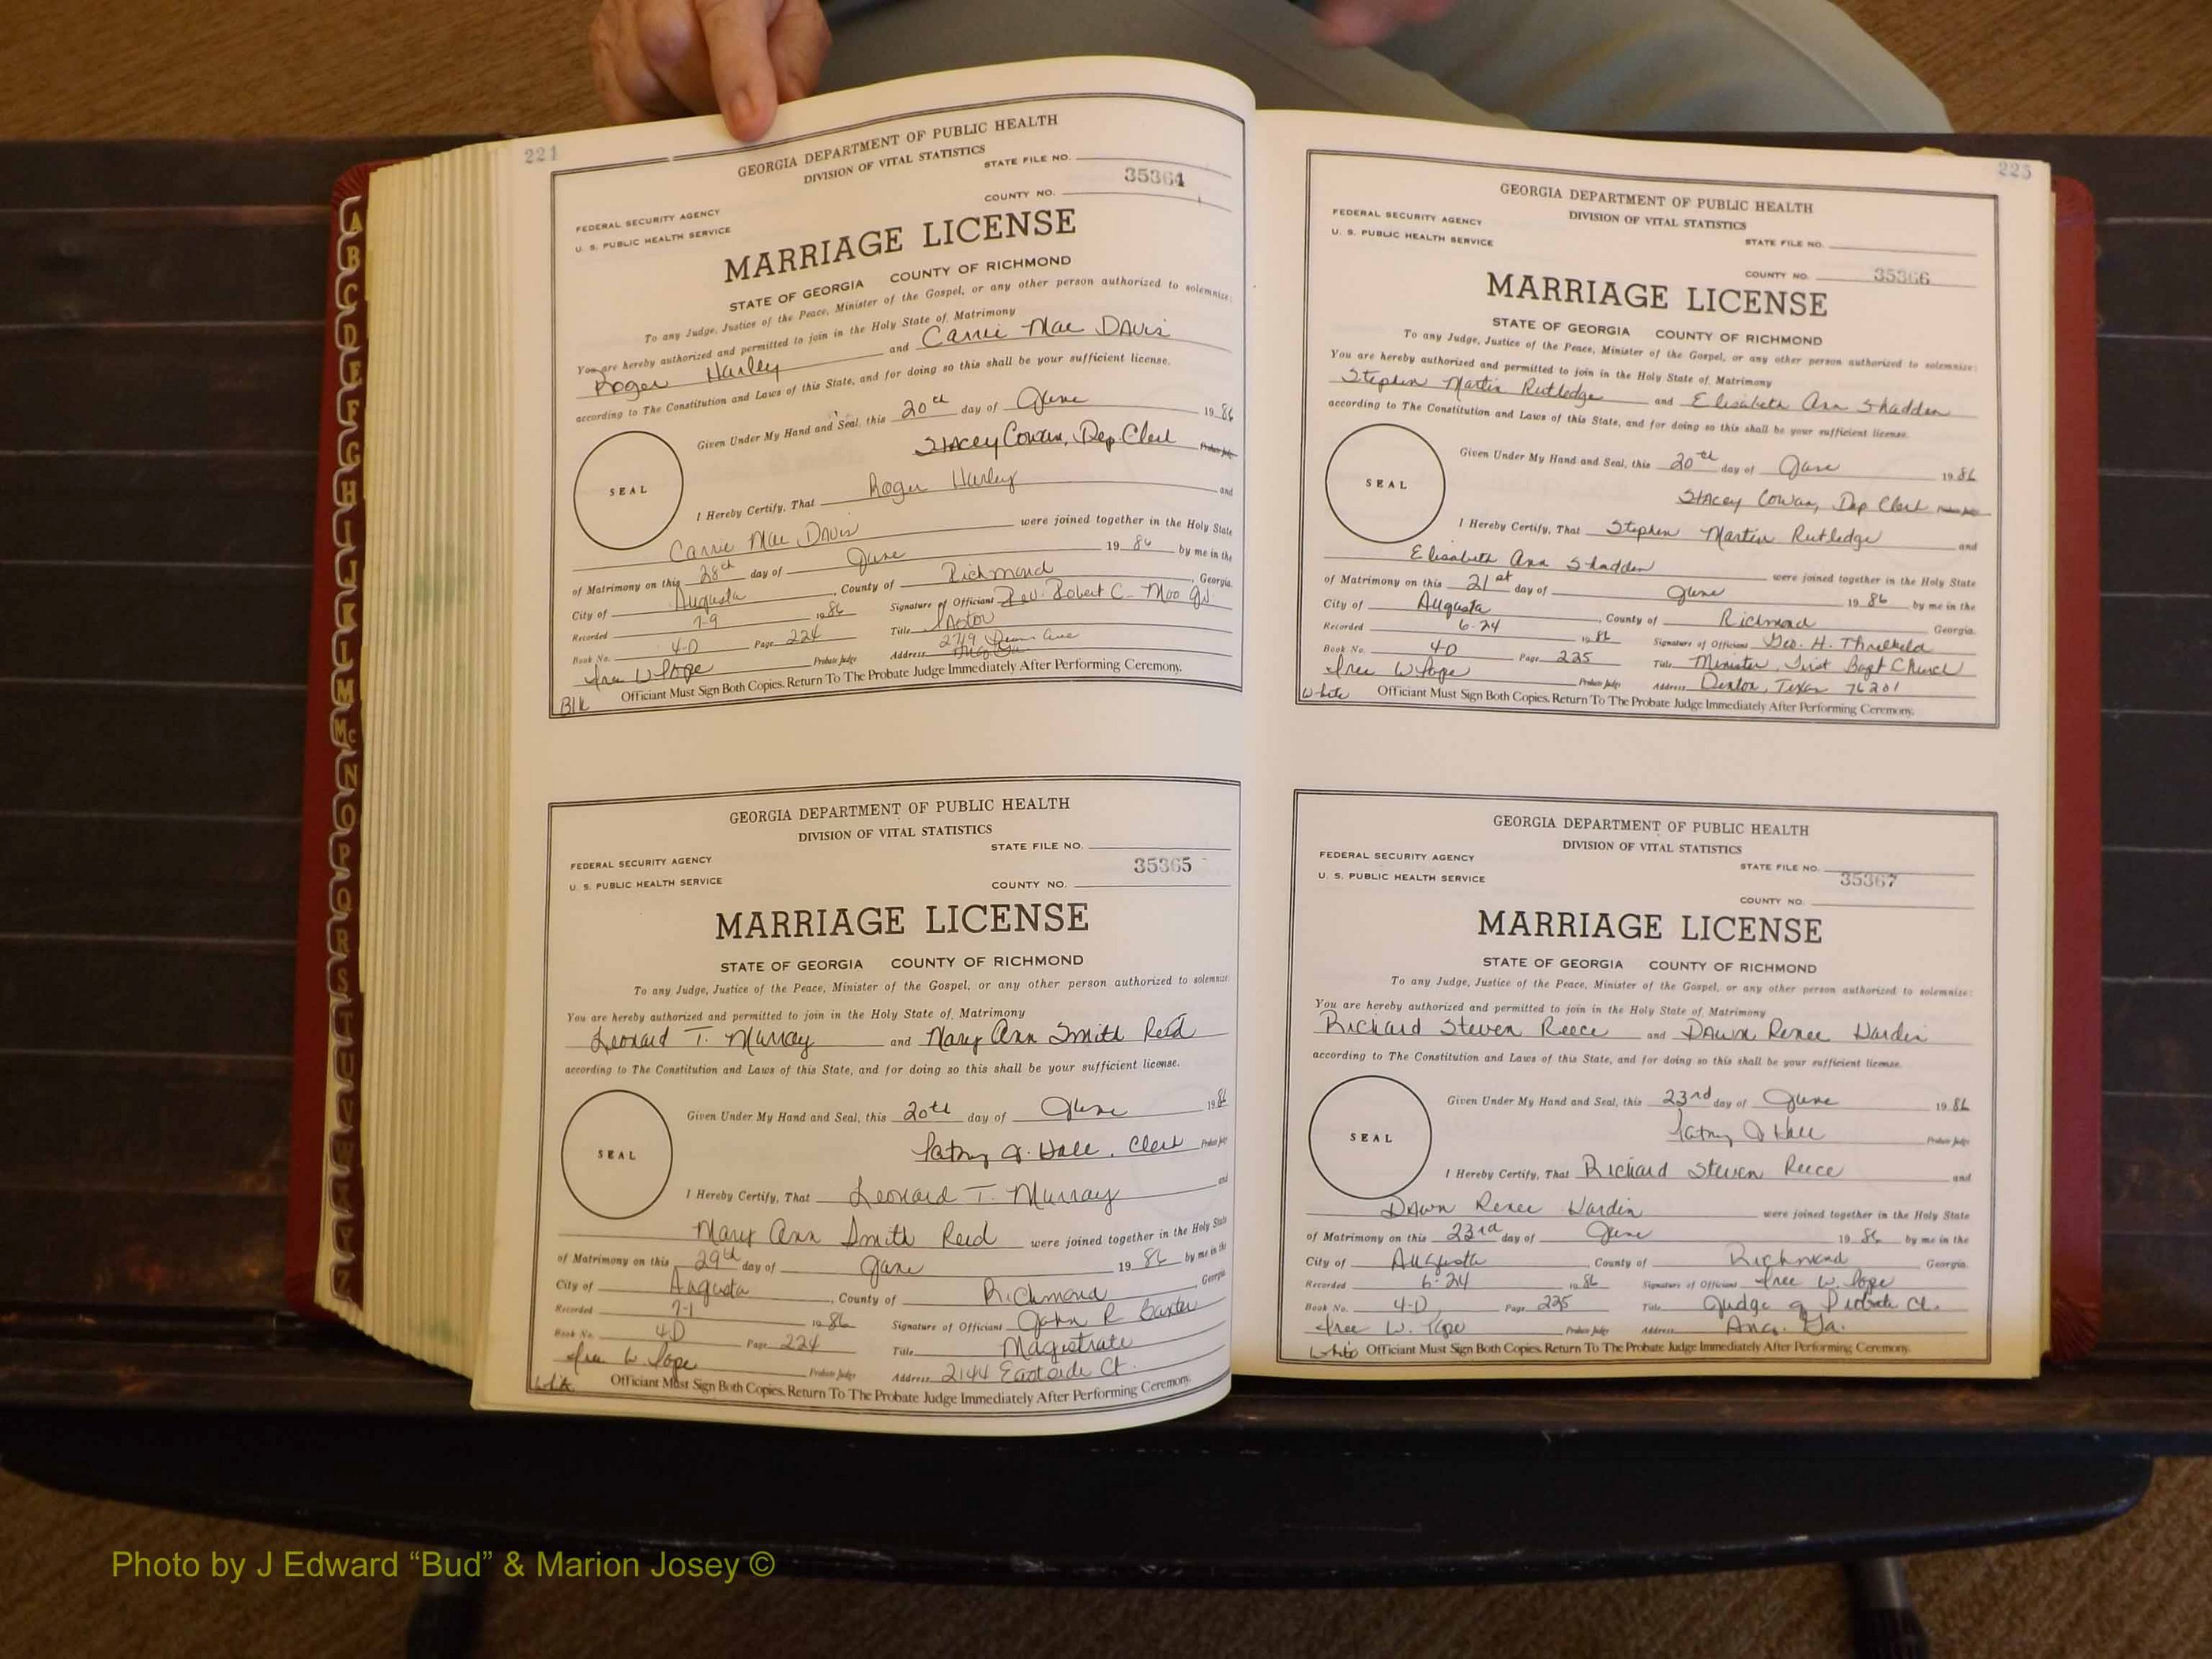 A
B
C
D
E
F
G
H
I
J
K
L
M
Mc
N
O
P
Q
R
S
T
U
V
W
X
Y
Z
GEORGIA DEPARTMENT OF PUBLIC HEALTH
DIVISION OF VITAL STATISTICS
STATE FILE NO.
35364
COUNTY NO.
FEDERAL SECURITY AGENCY
U. S. PUBLIC HEALTH SERVICE
MARRIAGE LICENSE
STATE OF GEORGIA COUNTY OF RICHMOND
To any Judge, Justice of the Peace, Minister of the Gospel, or any other person authorized to solemnize:
You are hereby authorized and permitted to join in the Holy State of Matrimony
Roger Hurley and Carrie Mae Davis
according to The Constitution and Laws of this State, and for doing so this shall be your sufficient license.
Given Under My Hand and Seal, this 20th day of June 19 86
Stacey Cowan, Dep. Clerk Probate Judge
SEAL
I Hereby Certify, That Roger Hurley and
Carrie Mae Davis were joined together in the Holy State
of Matrimony on this 28th day of June 19 86 by me in the
City of Augusta, County of Richmond, Georgia.
Recorded 7-9 19 86 Signature of Officiant Rev. Robert C.
Book No. 4-D Page 224 Title Pastor
Iree W Pope Probate Judge Address 2719 Ave
Blk Officiant Must Sign Both Copies. Return To The Probate Judge Immediately After Performing Ceremony.
GEORGIA DEPARTMENT OF PUBLIC HEALTH
DIVISION OF VITAL STATISTICS
STATE FILE NO.
35365
COUNTY NO.
FEDERAL SECURITY AGENCY
U. S. PUBLIC HEALTH SERVICE
MARRIAGE LICENSE
STATE OF GEORGIA COUNTY OF RICHMOND
To any Judge, Justice of the Peace, Minister of the Gospel, or any other person authorized to solemnize:
You are hereby authorized and permitted to join in the Holy State of Matrimony
Leonard T. Murray and Mary Ann Smith Reid
according to The Constitution and Laws of this State, and for doing so this shall be your sufficient license.
Given Under My Hand and Seal, this 20th day of June 19 86
Hall, Clerk Probate Judge
SEAL
I Hereby Certify, That Leonard T. Murray and
Mary Ann Smith Reid were joined together in the Holy State
of Matrimony on this 29th day of June 19 86 by me in the
City of Augusta, County of Richmond Georgia
Recorded 7-1 19 86 Signature of Officiant John R Baxter
Book No. 4D Page 224 Title Magistrate
Iree W Pope Probate Judge Address 2144 Eastside Ct.
White Officiant Must Sign Both Copies. Return To The Probate Judge Immediately After Performing Ceremony.
225
GEORGIA DEPARTMENT OF PUBLIC HEALTH
DIVISION OF VITAL STATISTICS
FEDERAL SECURITY AGENCY
U. S. PUBLIC HEALTH SERVICE
STATE FILE NO.
COUNTY NO. 35366
MARRIAGE LICENSE
STATE OF GEORGIA COUNTY OF RICHMOND
To any Judge, Justice of the Peace, Minister of the Gospel, or any other person authorized to solemnize:
You are hereby authorized and permitted to join in the Holy State of Matrimony
Stephen Martin Rutledge and Elisabeth Ann Shadden
according to The Constitution and Laws of this State, and for doing so this shall be your sufficient license.
Given Under My Hand and Seal, this 20th day of June 19 86
Stacey Cowan, Dep Clerk Probate Judge
SEAL
I Hereby Certify, That Stephen Martin Rutledge and
Elisabeth Ann Shadden were joined together in the Holy State
of Matrimony on this 21st day of June 19 86 by me in the
City of Augusta, County of Richmond Georgia.
Recorded 6-24 19 86 Signature of Officiant Geo. H. Threlkeld
Book No. 4D Page 225 Title Minister, First Bapt Church
Iree W Pope Probate Judge Address Denton, Texas 76201
White Officiant Must Sign Both Copies. Return To The Probate Judge Immediately After Performing Ceremony.
GEORGIA DEPARTMENT OF PUBLIC HEALTH
DIVISION OF VITAL STATISTICS
FEDERAL SECURITY AGENCY
U. S. PUBLIC HEALTH SERVICE
STATE FILE NO.
35367
COUNTY NO.
MARRIAGE LICENSE
STATE OF GEORGIA COUNTY OF RICHMOND
To any Judge, Justice of the Peace, Minister of the Gospel, or any other person authorized to solemnize:
You are hereby authorized and permitted to join in the Holy State of Matrimony
Richard Steven Reece and Dawn Renee Hardin
according to The Constitution and Laws of this State, and for doing so this shall be your sufficient license.
Given Under My Hand and Seal, this 23rd day of June 19 86
Hall Probate Judge
SEAL
I Hereby Certify, That Richard Steven Reece and
Dawn Renee Hardin were joined together in the Holy State
of Matrimony on this 23rd day of June 19 86 by me in the
City of Augusta, County of Richmond Georgia
Recorded 6-24 19 86 Signature of Officiant Iree W. Pope
Book No. 4-D Page 225 Title Judge of Probate Ct.
Iree W. Pope Probate Judge Address Aug. Ga.
White Officiant Must Sign Both Copies. Return To The Probate Judge Immediately After Performing Ceremony.
Photo by J Edward “Bud” & Marion Josey ©